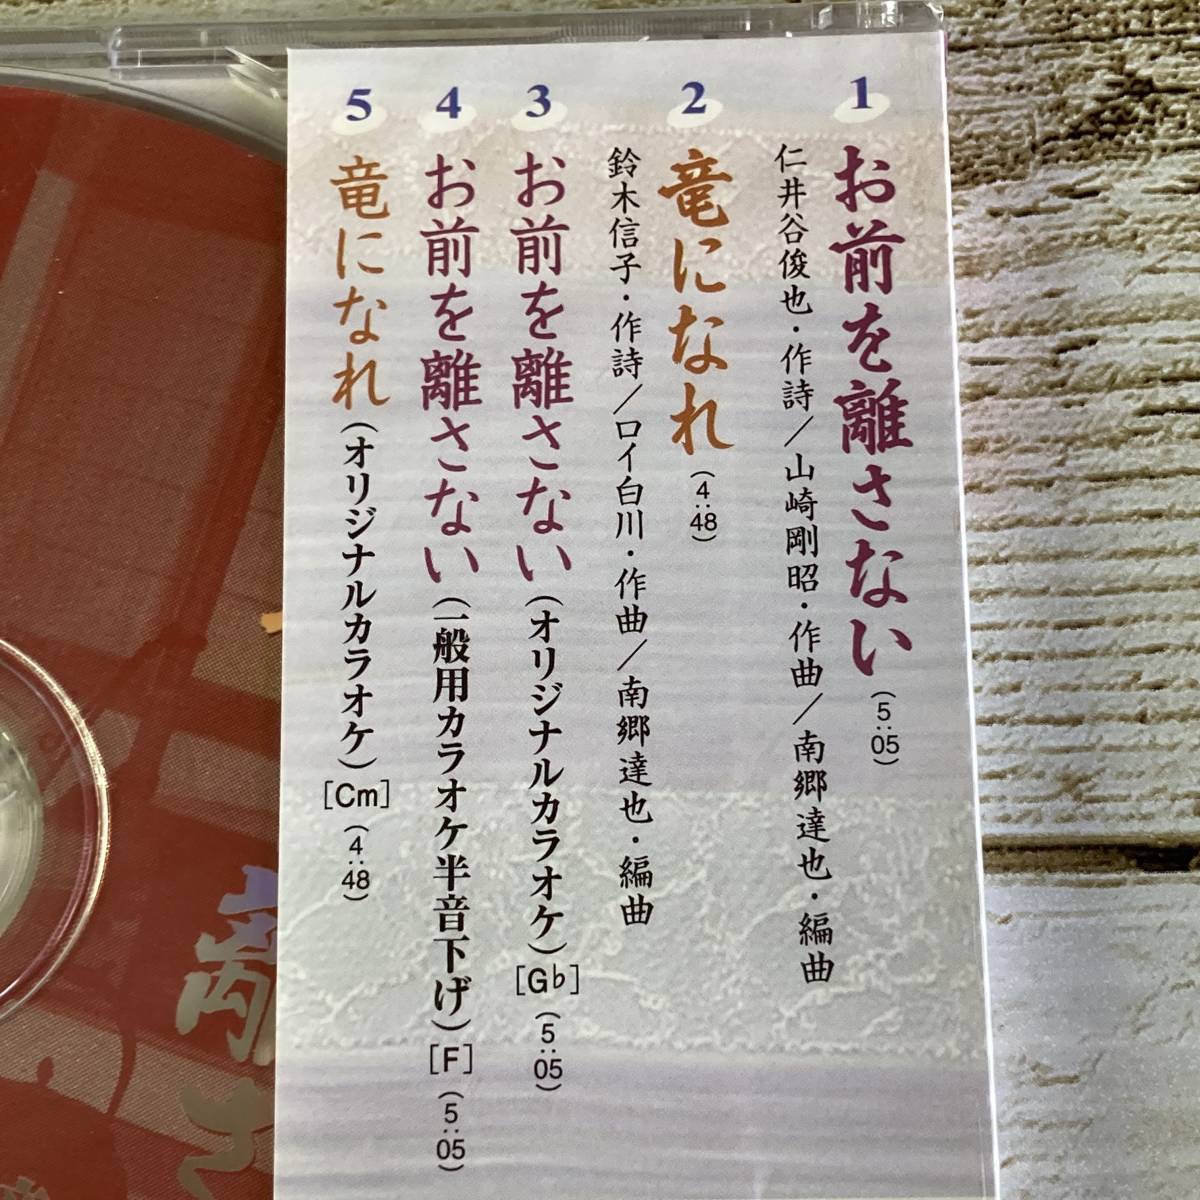 1
お前を離さない (5:05)
仁井谷俊也・作詩/山崎剛昭・作曲/南郷達也・編曲
2
竜になれ (4:48)
鈴木信子・作詩/ロイ白川・作曲/南郷達也・編曲
3
お前を離さない (オリジナルカラオケ) [G♭] (5:05)
4
お前を離さない (一般用カラオケ半音下げ) [F] (5:05)
5
竜になれ (オリジナルカラオケ) [Cm] (4:48)
離さ